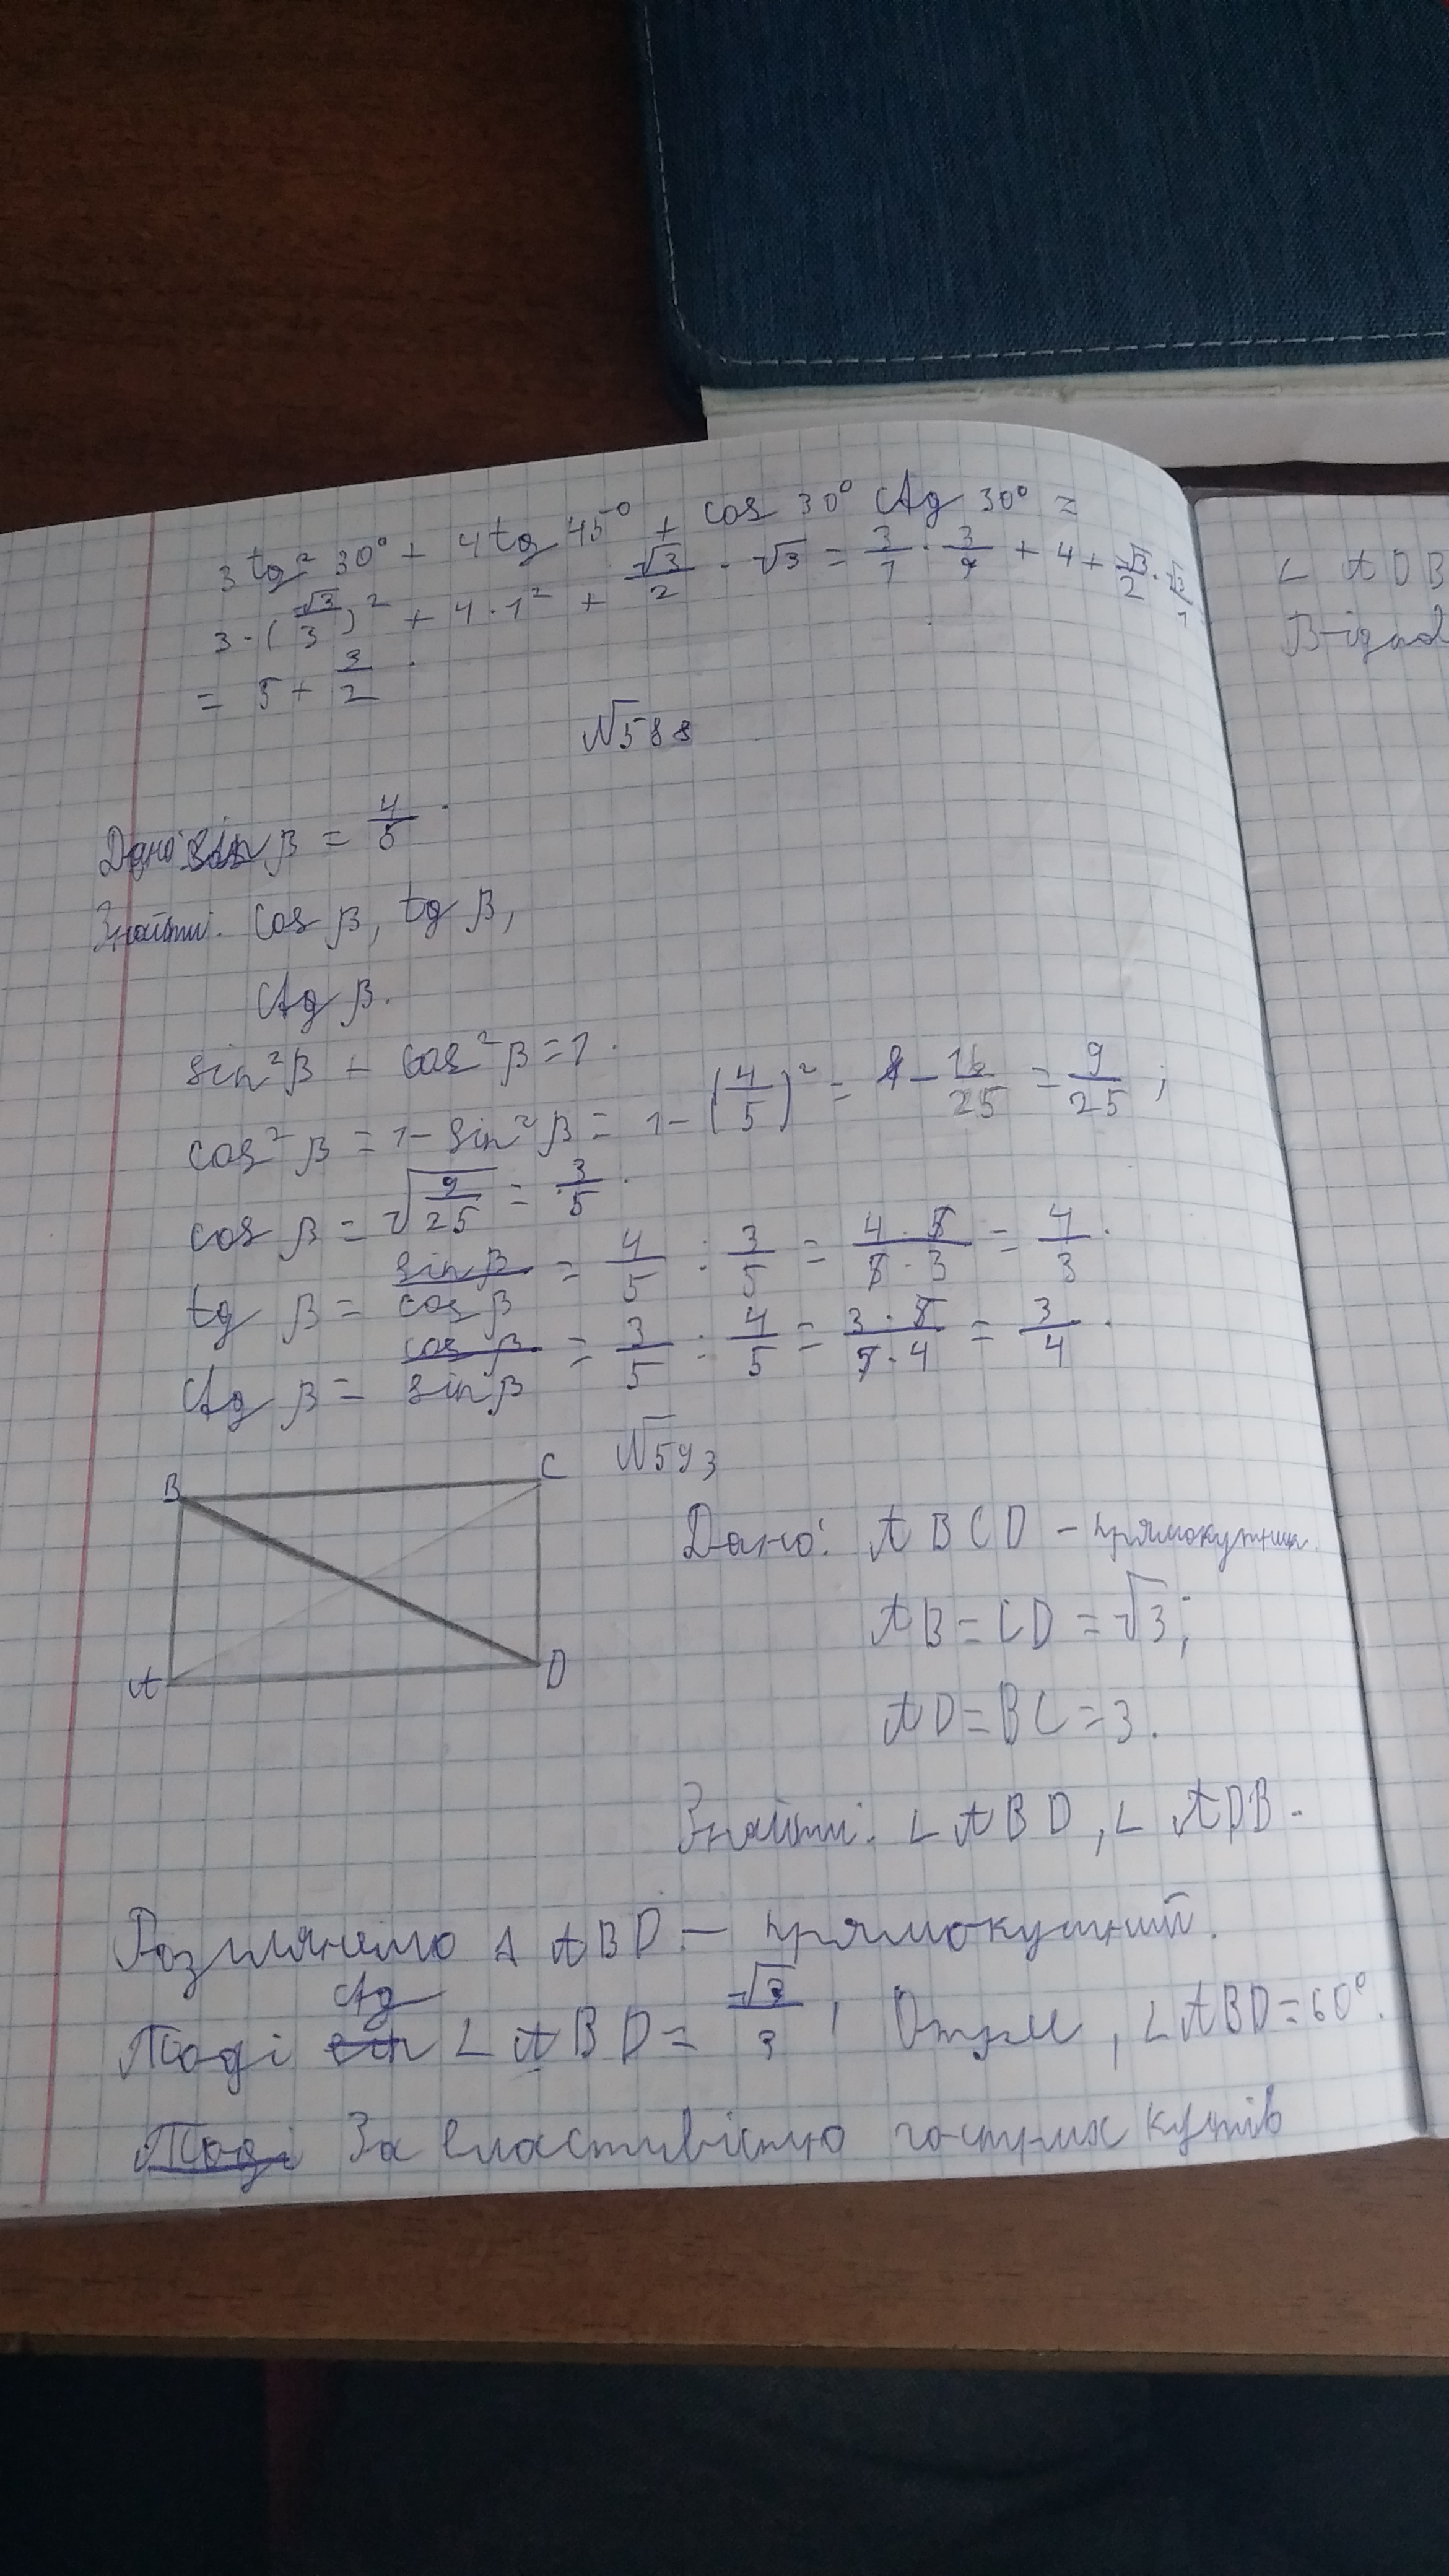 3 tg² 30° + 4 tg 45° + cos 30° ctg 30° =
3·(√3/3)² + 4·1² + √3/2 · √3 = 3/1 · 3/9 + 4 + √3/2 · √3/1
= 5 + 3/2.
№588
Дано: sin β = 4/5.
Знайти: cos β, tg β,
ctg β.
sin²β + cos²β = 1.
cos²β = 1 - sin²β = 1 - (4/5)² = 1 - 16/25 = 9/25;
cos β = √(9/25) = 3/5.
tg β = sin β/cos β = 4/5 : 3/5 = 4·5/5·3 = 4/3.
ctg β = cos β/sin β = 3/5 : 4/5 = 3·5/5·4 = 3/4.
№593
B
C
A
D
Дано: ABCD – прямокутник.
AB = CD = √3;
AD = BC = 3.
Знайти: ∠ABD, ∠ADB.
Розглянемо Δ ABD – прямокутний.
Тоді ctg ∠ABD = √3/3, Отже, ∠ABD = 60°.
Тоді За властивістю гострих кутів
∠ ADB
Відпов